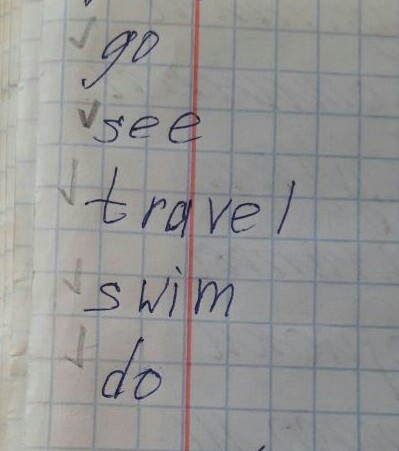 go
see
travel
swim
do